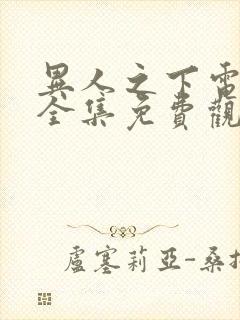 異人之下電
全集免費觀
盧塞莉亞-桑托